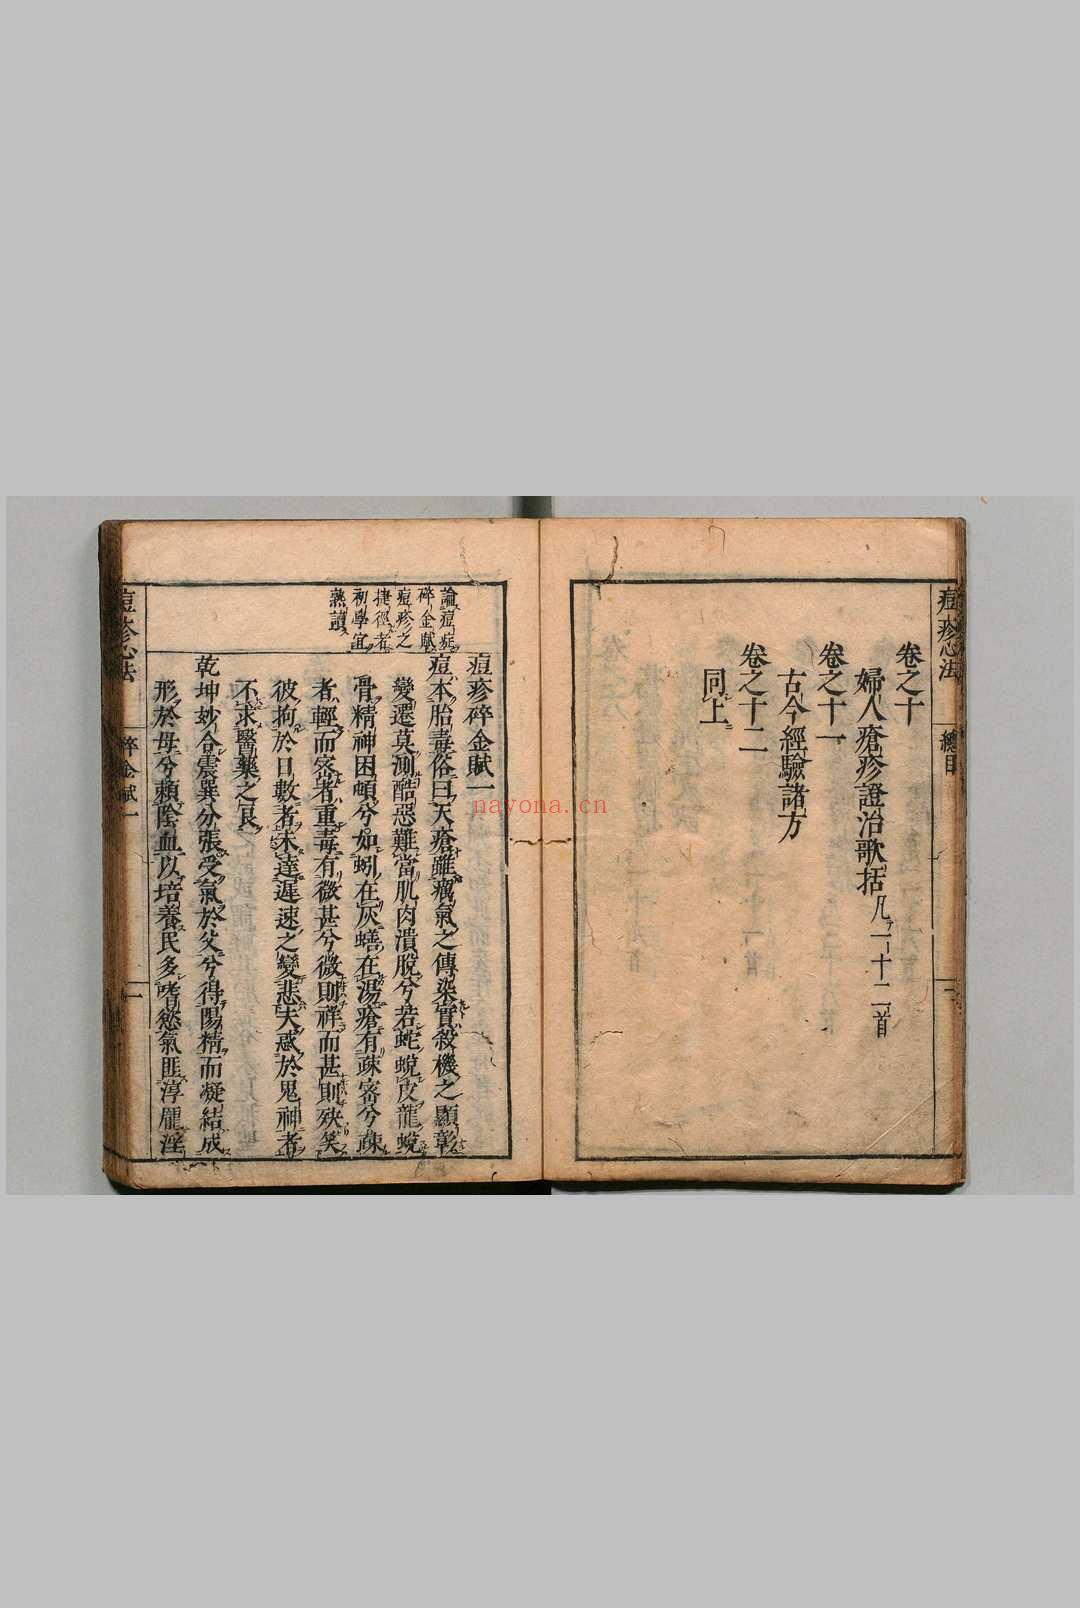 痘疹心法
總目
卷之十
婦人瘡疹證治歌括凡一十二首
卷之十一
古今經驗諸方
卷之十二
同上
nayona.cn
論痘症
碎金賦
痘疹之
捷徑者
初學宜
熟讀
痘疹碎金賦一
痘本胎毒俗曰天瘡雖癘氣之傳染實殺機之顯彰
變遷莫測酷惡難當肌肉潰脫兮若蛇蛻皮龍蛻
骨精神困頓兮如蚓在灰蟮在湯瘡有疎密兮疎
者輕而密者重毒有微甚兮微則祥而甚則殃笑
彼拘於日數者未達遲速之變悲夫惑於鬼神者
不求醫藥之良
乾坤妙合震巽分張受氣於父兮得陽精而凝結成
形於母兮賴陰血以培養民多嗜慾氣匪淳龐淫
痘疹心法
碎金賦一
一